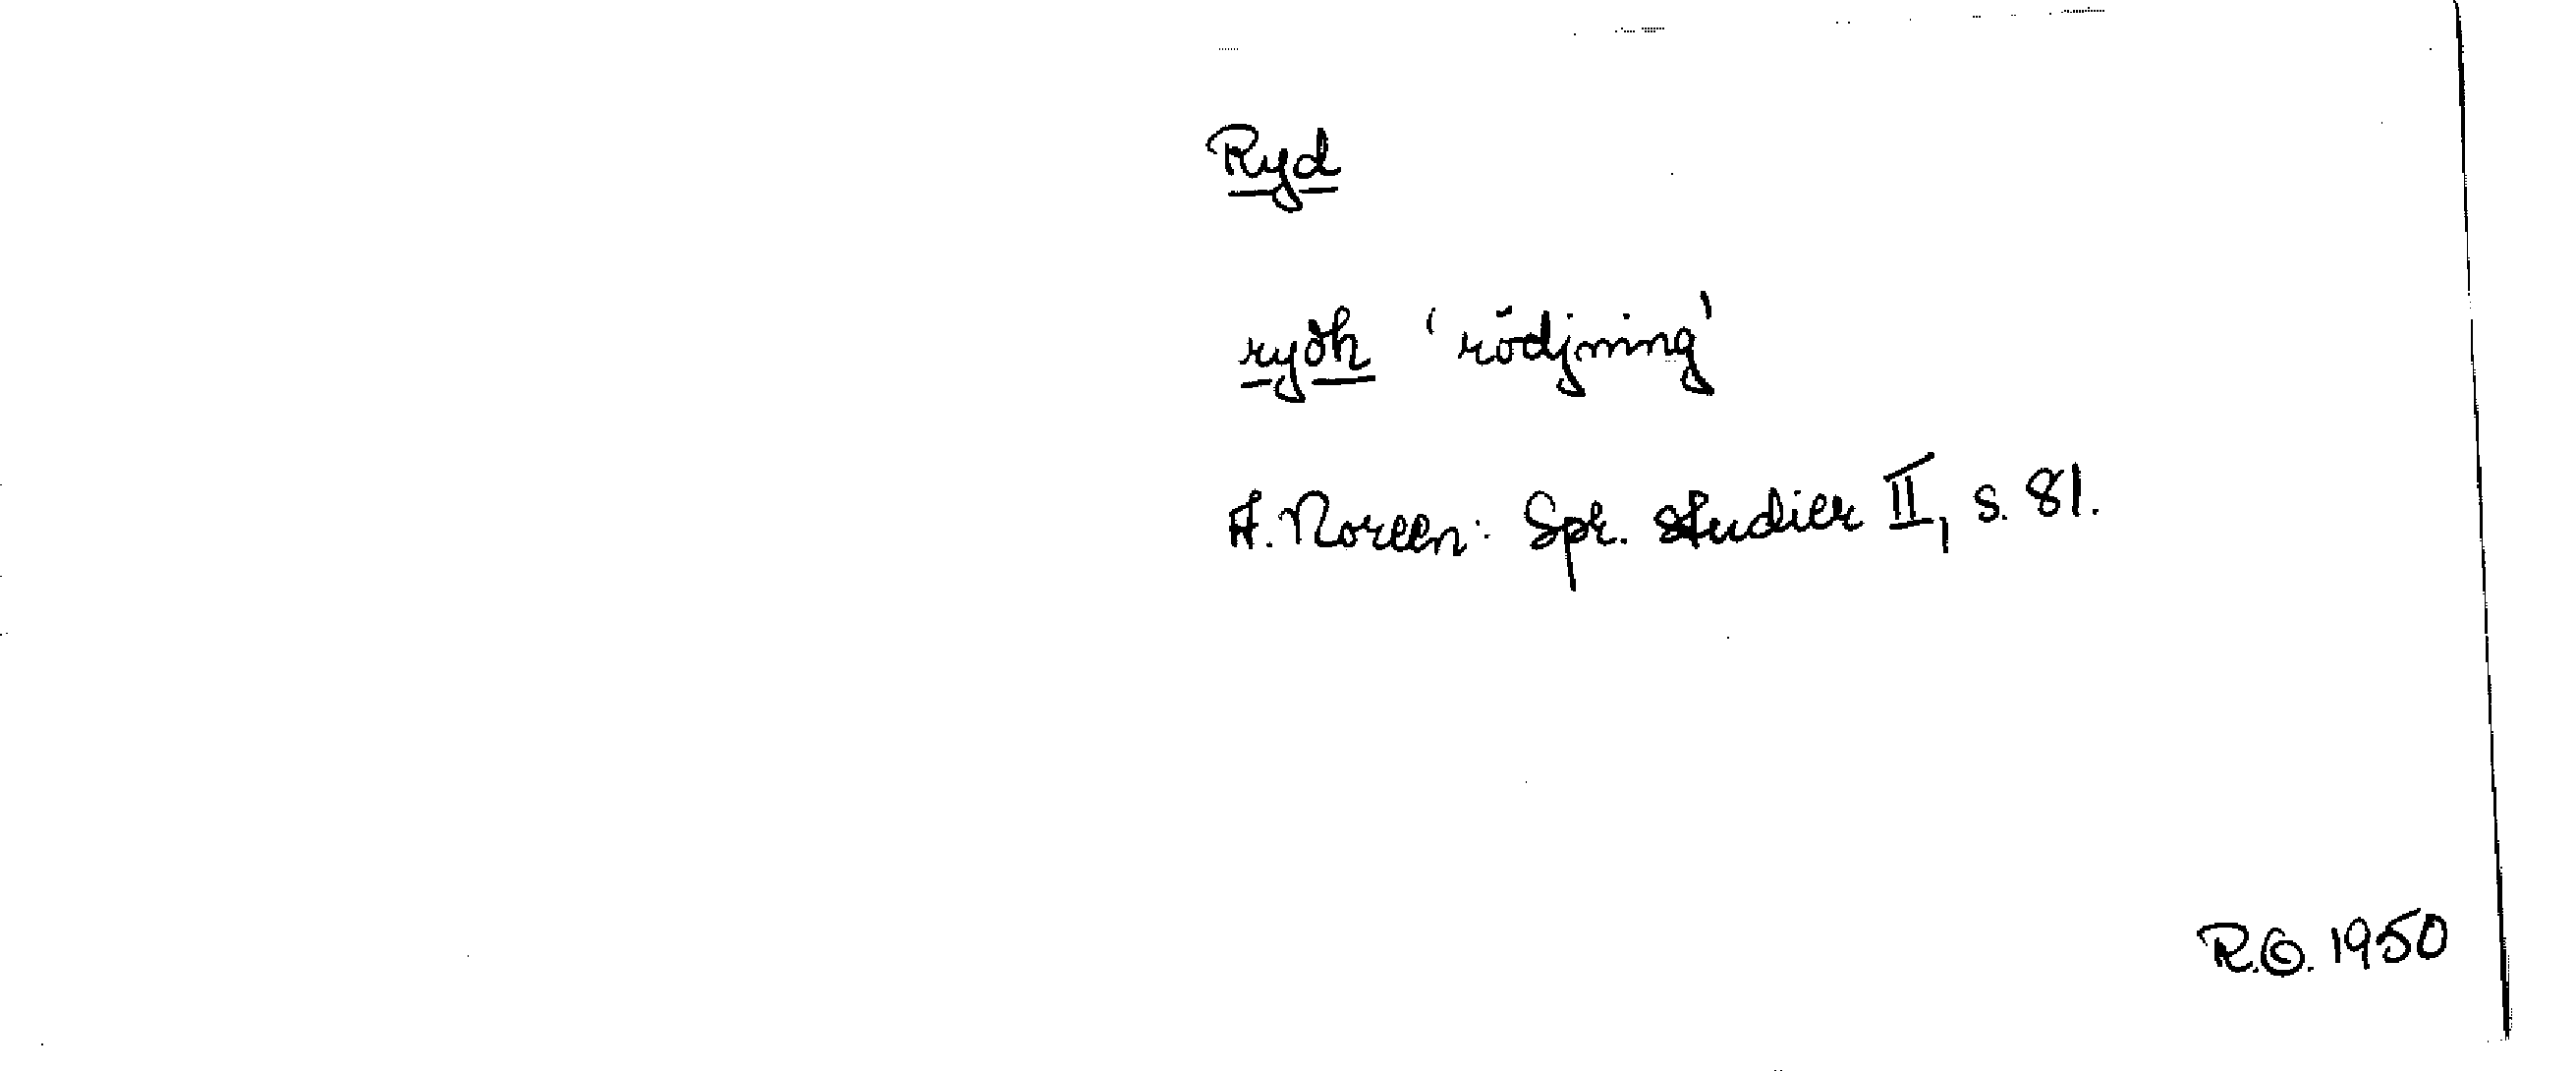 Ryd
ryðh 'rödjning'
A. Noreen: Spr. studier II, s. 81.
R.O. 1950